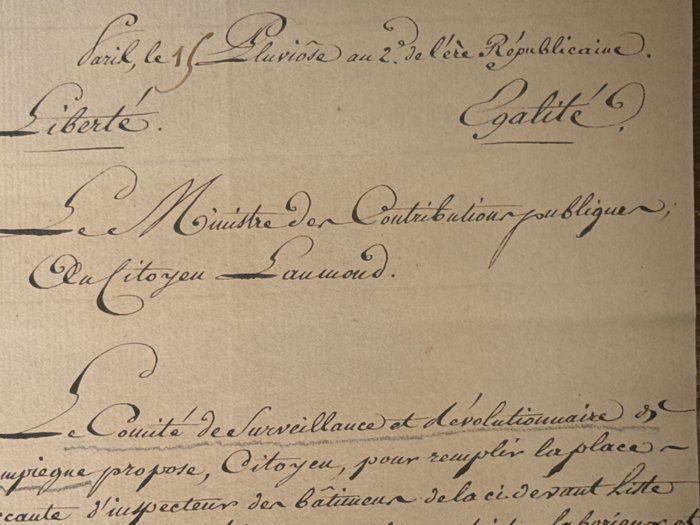 Paris, le 15 Pluviôse an 2.e de l'ère Républicaine.
Liberté. Egalité.
Le Ministre des Contributions publiques,
Au Citoyen Laumond.
Le Comité de Surveillance et révolutionnaire de
mpiegne propose, Citoyen, pour remplir la place
cante d'inspecteur des bâtimens de la ci devant Liste